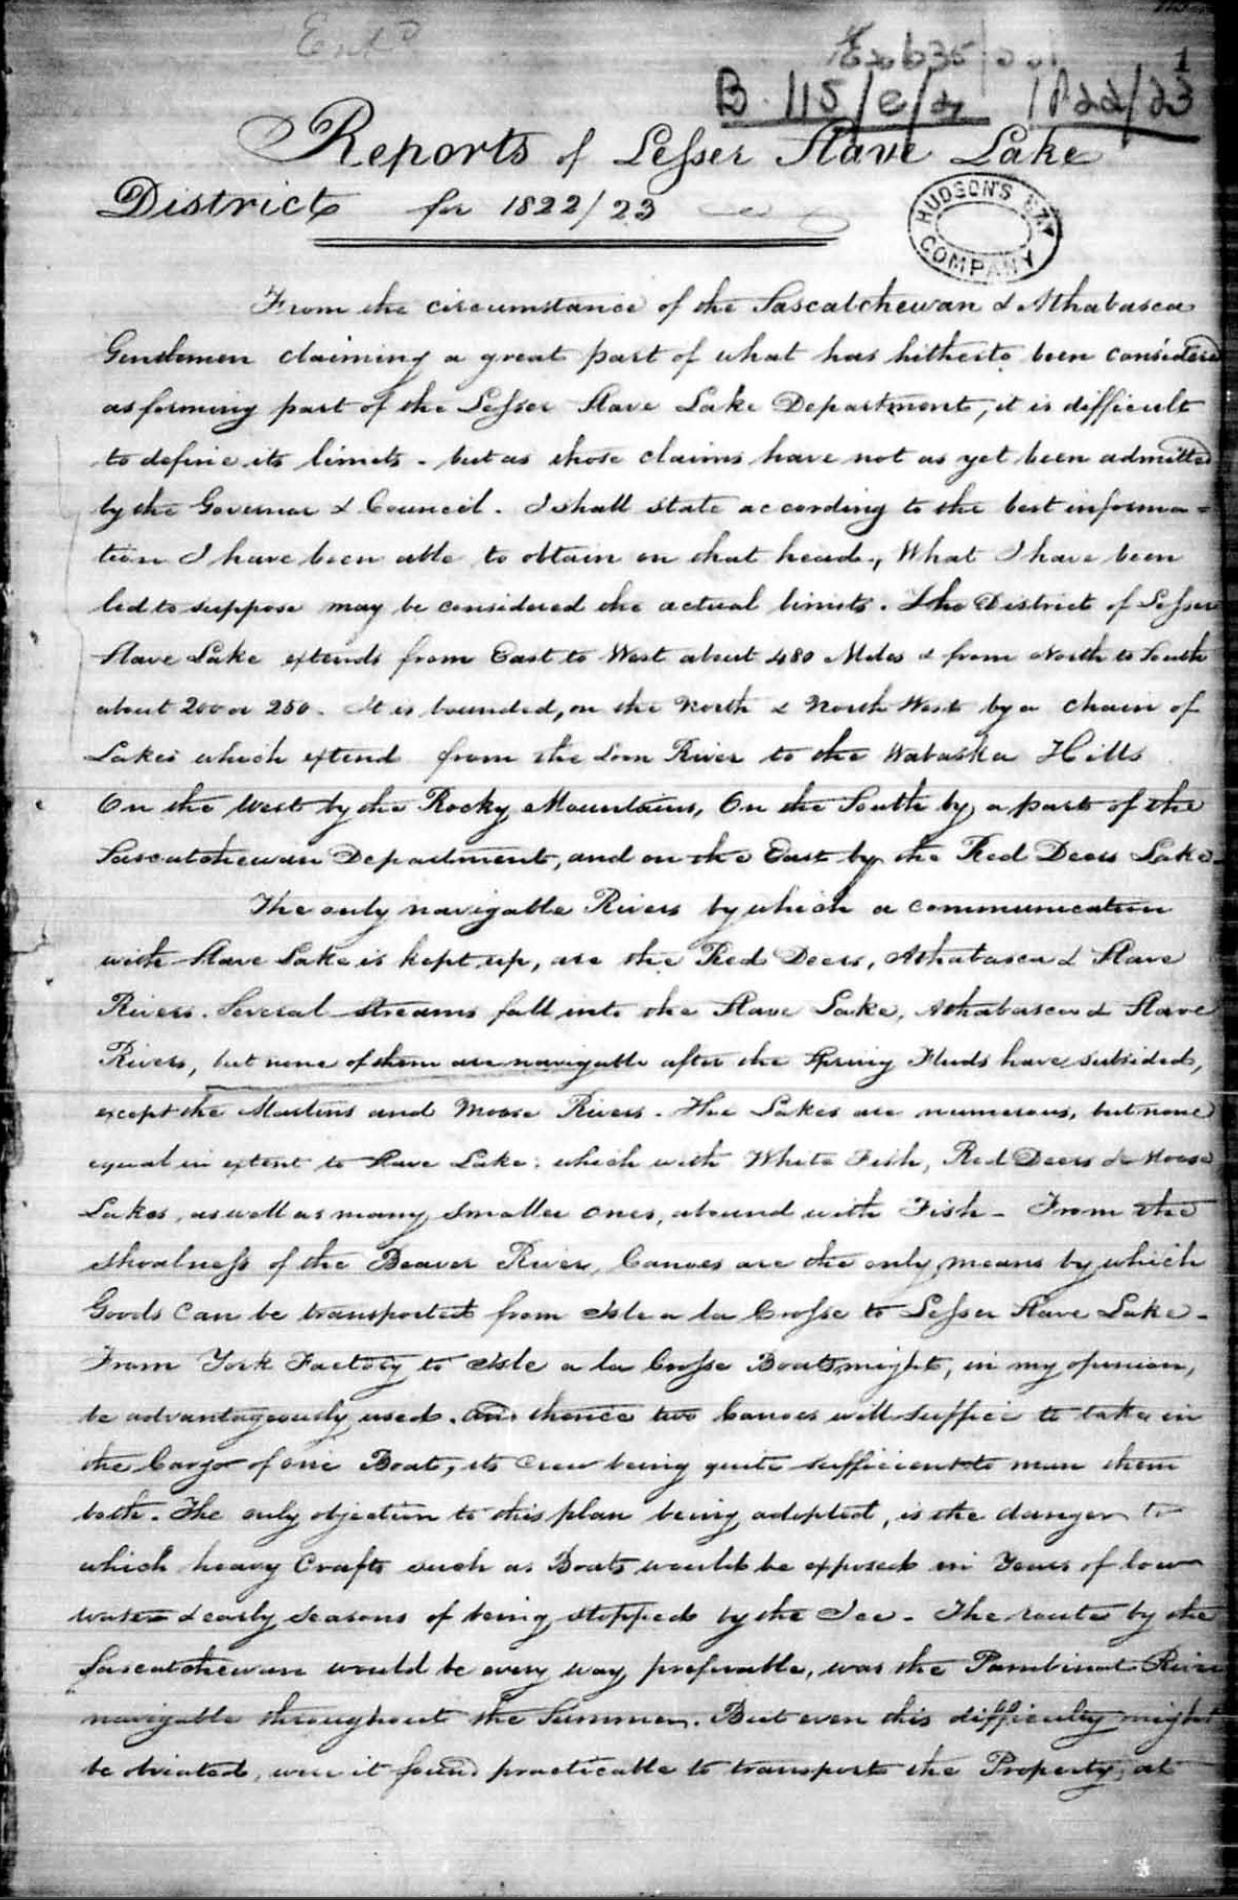 Ent^d
1
B. 115/e/4 1822/23
Reports of Lesser Slave Lake
District for 1822/23
HUDSON'S BAY COMPANY
From the circumstance of the Sascatchewan & Athabasca
Gentlemen claiming a great part of what has hitherto been considered
as forming part of the Lesser Slave Lake Department, it is difficult
to define its limits - but as those claims have not as yet been admitted
by the Governor & Council. I shall state according to the best informa=
tion I have been able to obtain on that head, What I have been
led to suppose may be considered the actual limits. The District of Lesser
Slave Lake extends from East to West about 480 Miles & from North to South
about 200 or 250. It is bounded, on the North & North West by a chain of
Lakes which extend from the Loon River to the Wabaska Hills
On the West by the Rocky Mountains, On the South by a part of the
Sascatchewan Department, and on the East by the Red Deers Lake -
The only navigable Rivers by which a communication
with Slave Lake is kept up, are the Red Deers, Athabasca & Slave
Rivers. Several streams fall into the Slave Lake, Athabasca & Slave
Rivers, but none of them are navigable after the Spring Fluds have subsided,
except the Martins and Moose Rivers. The Lakes are numerous, but none
equal in extent to Slave Lake, which with White Fish, Red Deers & Moose
Lakes, as well as many smaller ones, abound with Fish - From the
shoalness of the Beaver River, Canoes are the only means by which
Goods can be transported from Isle a la Crosse to Lesser Slave Lake -
From York Factory to Isle a la Crosse Boats might, in my opinion,
be advantageously used. and thence two Canoes will suffice to take in
the Cargo of one Boat, its Crew being quite sufficient to man them
both. The only objection to this plan being adopted, is the danger to
which heavy Crafts such as Boats would be exposed in Years of low
water & early seasons of being stopped by the Ice. The route by the
Sascatchewan would be every way preferable, was the Pambinat River
navigable throughout the Summer. But even this difficulty might
be obviated, were it found practicable to transport the Property, at